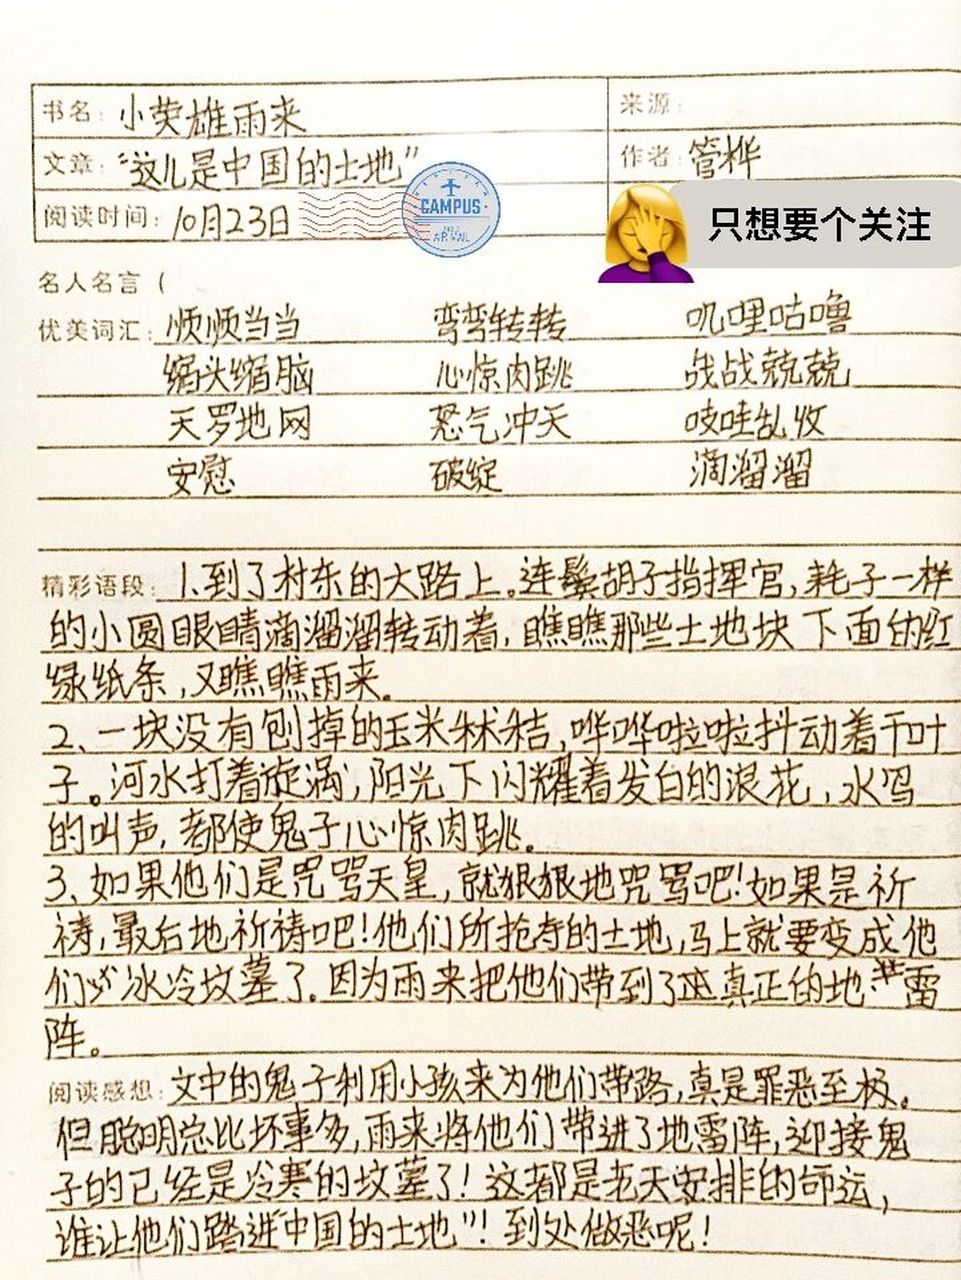 书名：小英雄雨来
来源：
文章："这儿是中国的土地"
作者：管桦
阅读时间：10月23日
CAMPUS
AIR MAIL
只想要个关注
名人名言（
优美词汇：顺顺当当 弯弯转转 叽哩咕噜
缩头缩脑 心惊肉跳 战战兢兢
天罗地网 怒气冲天 吱哇乱收
安慰 破绽 滴溜溜
精彩语段：1.到了村东的大路上。连鬓胡子指挥官，耗子一样
的小圆眼睛滴溜溜转动着，瞧瞧那些土地块下面的红
绿纸条，又瞧瞧雨来。
2、一块没有刨掉的玉米秫秸，哗哗啦啦抖动着干叶
子。河水打着旋涡，阳光下闪耀着发白的浪花，水鸟
的叫声，都使鬼子心惊肉跳。
3、如果他们是咒骂天皇，就狠狠地咒骂吧！如果是祈
祷，最后地祈祷吧！他们所抢夺的土地，马上就要变成他
们冰冷坟墓了。因为雨来把他们带到了真正的地雷
阵。
阅读感想：文中的鬼子利用小孩来为他们带路，真是罪恶至极。
但聪明总比坏事多，雨来将他们带进了地雷阵，迎接鬼
子的已经是冷寒的坟墓了！这都是老天安排的命运，
谁让他们踏进"中国的土地"！到处做恶呢！